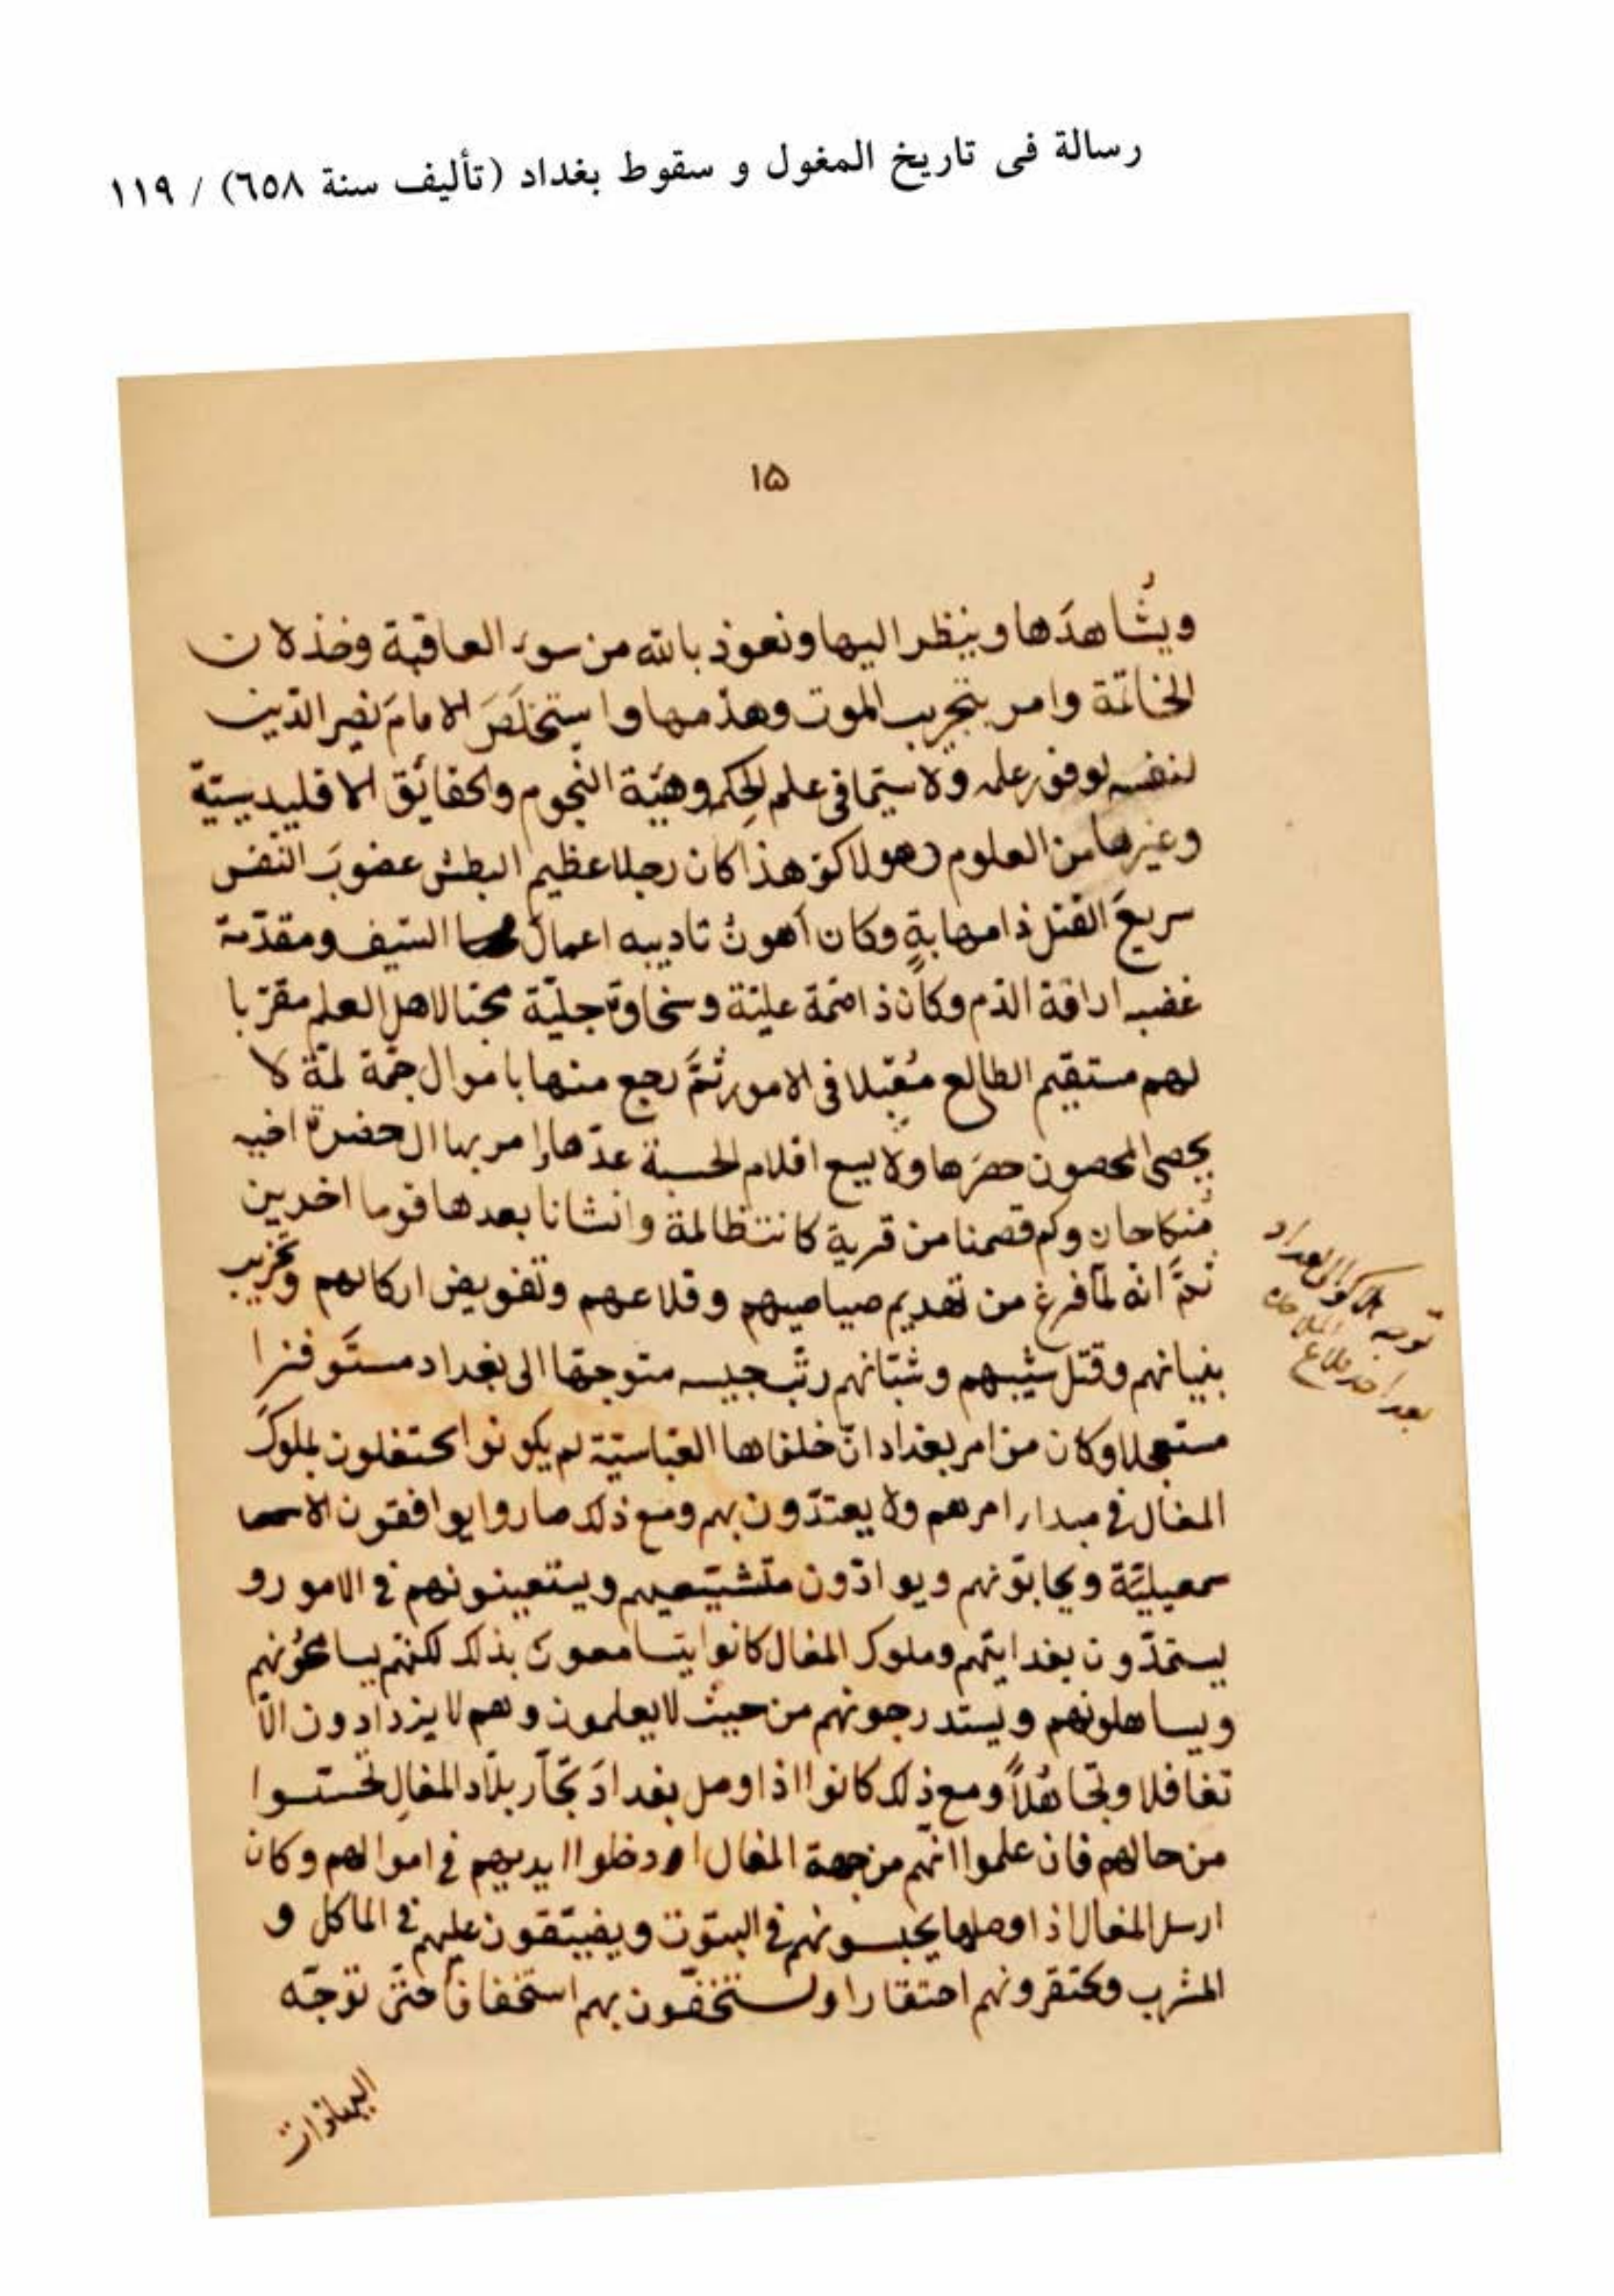 رسالة فى تاريخ المغول و سقوط بغداد (تأليف سنة ٦٥٨) / ١١٩
١۵
ويُشاهدَها وينظر اليها ونعوذ بالله من سوء العاقبة وخذلان
الخاتمة وامر بتخريب الموت وهدمها واستخلَصَ الامامَ نصير الدّين
لنفسه لوفور علمه ولا سيّما فى علم الحِكم وهئَة النّجوم والحقائق الاقليديسيّة
وغيرها من العلوم وهولاكو هذا كان رجلا عظيم البطش غضوبَ النّفس
سريعَ القتل ذا مهابةٍ وكان أهونُ تاديبه اعمالَ السّيف ومقدّمة
غضبه اراقة الدّم وكان ذا همّة عليّة وسخاوة جليّة محبّا لاهل العلم مقرّبا
لهم مستقيم الطالع مُقبلا فى الامور ثمَّ رجع منها باموال جمّة لمّة لا
يحصى المحصون حصرَها ولا يسع اقلام الحسبة عدّها وامر بها الى حضرة اخيه
مُنكاحان وكم قصمنا من قرية كانت ظالمة وانشانا بعدها قوما اخرين
ثمَّ انّه لمّا فرغ من تهديم صياصيهم وقلاعهم وتفويض اركانهم وتخريب
بنيانهم وقتل شيبهم وشبّانهم رتّب جيسه متوجّها الى بغداد مستَوفزا
مستعجلا وكان من امر بغداد انّ خلفاها العبّاسيّة لم يكونوا يحتفلون بملوك
المغال في مبدا امرهم ولا يعتدّون بهم ومع ذلك صاروا يوافقون الا
سمعيليّة ويحابّونهم ويوادّون متشيّعيهم ويستعينونهم في الامور و
يستمدّون بفدايتهم وملوك المغال كانوا يتسامعون بذلك لكنّهم يسامحُونهم
ويساهلونهم ويستدرجونهم من حيث لا يعلمون وهم لا يزدادون الّا
تغافلا وتجاهُلاً ومع ذلك كانوا اذا وصل بغدادَ تجّار بلاد المغالِ تحسّسوا
من حالهم فان علموا انّهم من جهة المغال ادخلوا ايديهم في اموالهم وكان
ارسل المغال اذا وصلها يحبسونهم في البيوت ويضيّقون عليهم في الماكل و
المشرب ويحتقرونهم احتقارا ويستخفّون بهم استخفافا حتّى توجّه
توجه الى بغداد
بعد اخذ قلاع الملاحدة